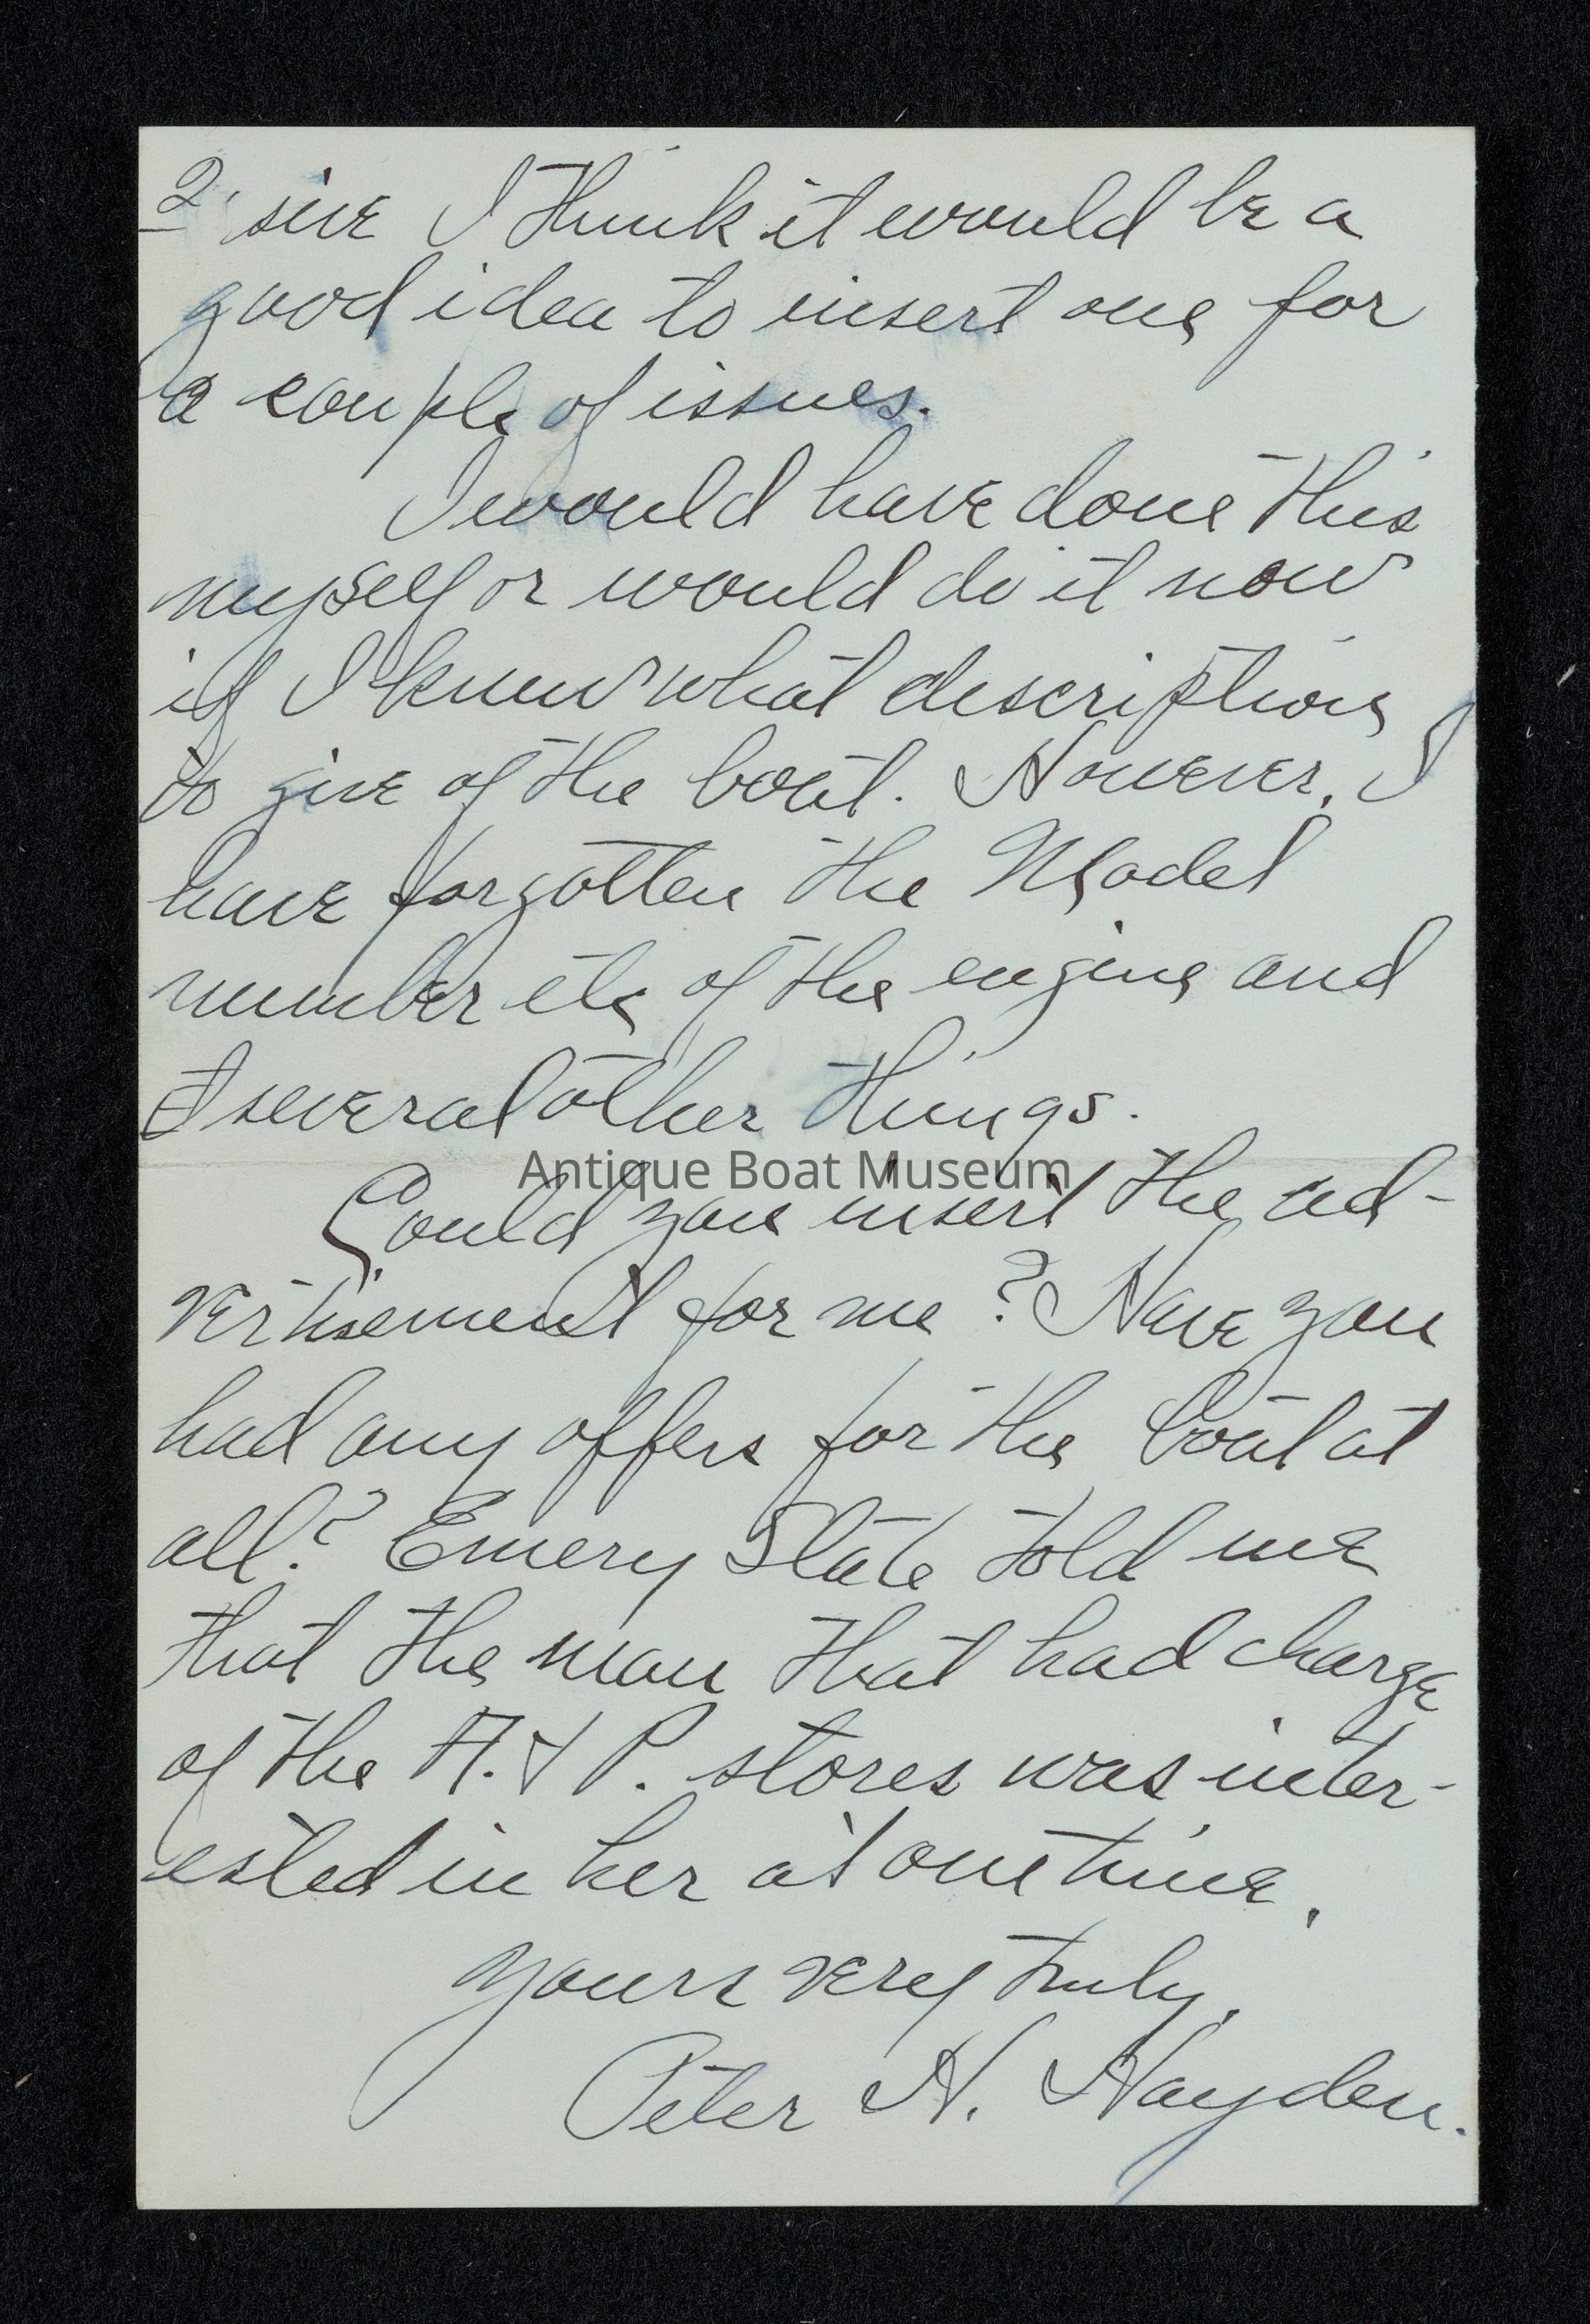 2. sive I think it would be a
good idea to insert one for
a couple of issues.
I would have done this
myself or would do it now
if I knew what description
to give of the boat. However, I
have forgotten the Model
number etc of the engine and
several other things.
Antique Boat Museum
Could you insert the ad-
vertisement for me? Have you
had any offers for the boat at
all? Emery State told me
that the man that had charge
of the A. & P. stores was inter-
ested in her at one time.
Yours very truly,
Peter H. Hayden.